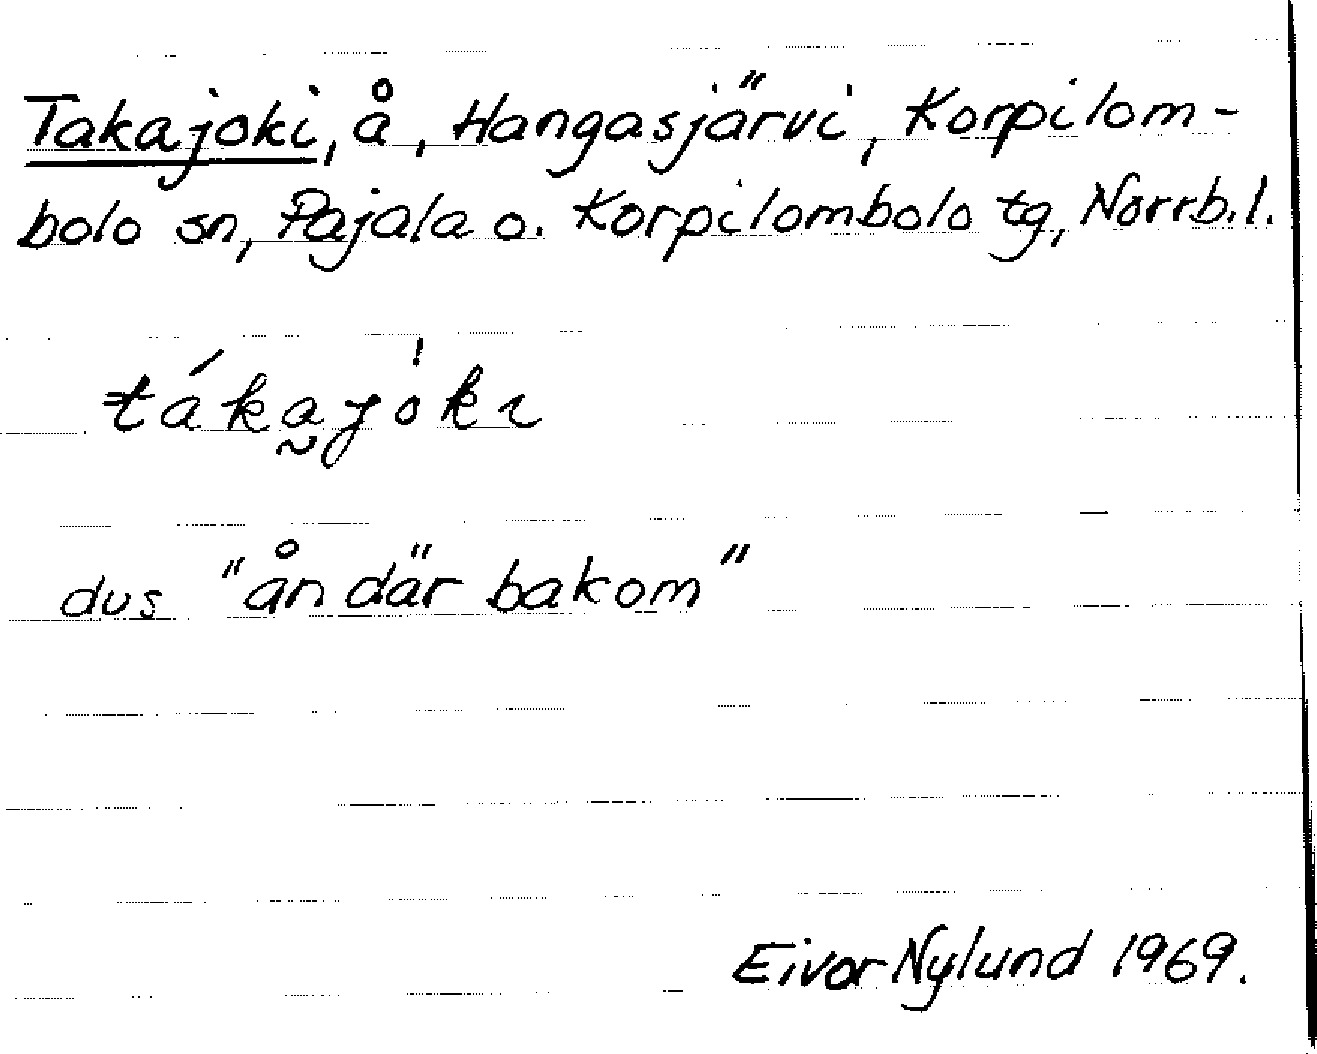 Takajoki, å, Hangasjärvi, Korpilom-
bolo sn, Pajala o. Korpilombolo tg, Norrb.l.
táka̰jòkɩ
dus "ån där bakom"
Eivor Nylund 1969.